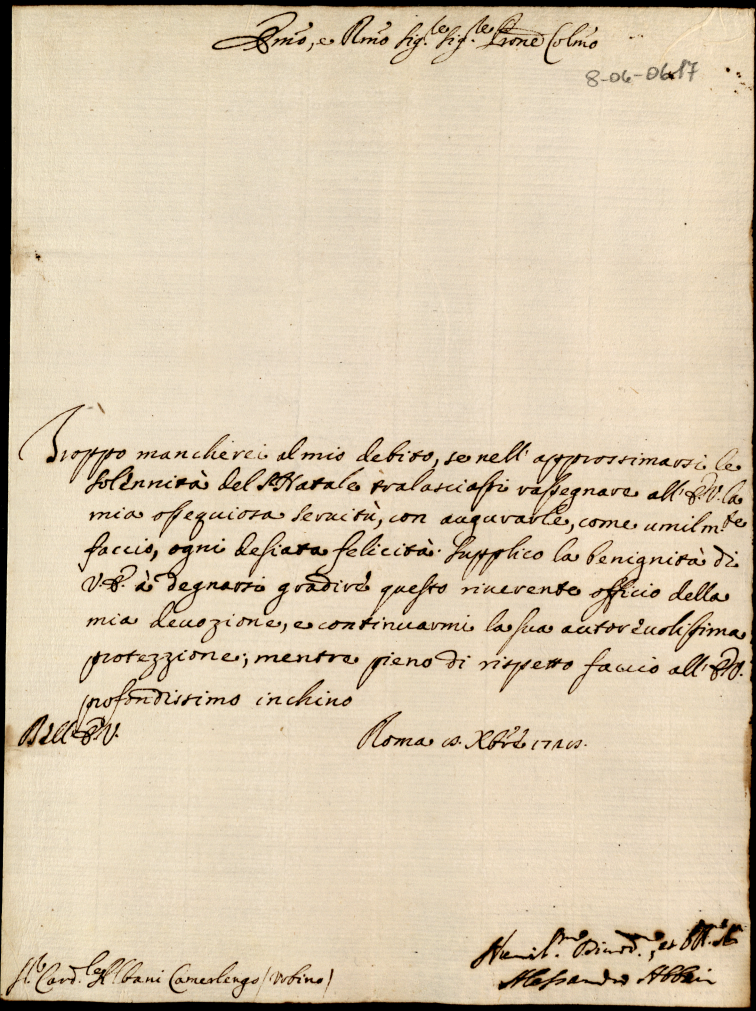 Emo, e Rmo Sig.re Sig.re Prone Colmo
8-06-06.17
Troppo mancherei al mio debito, se nell' approssimarsi le
solennità del S. Natale tralasciassi rassegnare all' E.V. la
mia ossequiosa servitù, con augurarle, come umilm.te
faccio, ogni desiata felicità. Supplico la benignità di
V.E. à degnarsi gradire questo riverente officio della
mia devozione, e continuarmi la sua autorevolissima
protezzione; mentre pieno di rispetto faccio all' E.V.
profondissimo inchino
Dell' E.V. Roma Xbre
Humil.mo Divot.mo, et
Sr. Card.le Albani Camerlengo (Urbino) Alessandro